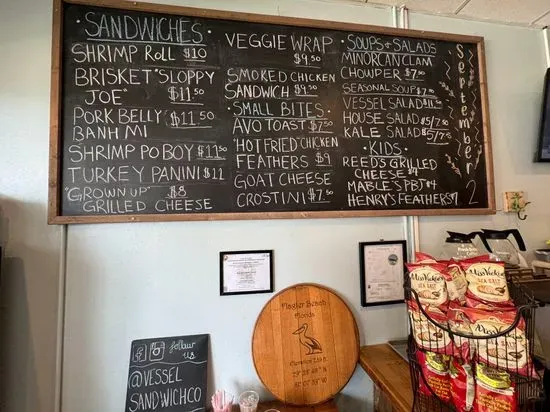 SANDWICHES
SHRIMP ROLL $10
BRISKET "SLOPPY
JOE" $11.50
PORK BELLY $11.50
BANH MI
SHRIMP PO BOY $11.50
TURKEY PANINI $11
"GROWN UP" $8
GRILLED CHEESE
VEGGIE WRAP
$9.50
SMOKED CHICKEN
SANDWICH $9.50
SMALL BITES
AVO TOAST $7.50
"HOT FRIED" CHICKEN
FEATHERS $9
GOAT CHEESE
CROSTINI $7.50
SOUPS & SALADS
MINORCAN CLAM
CHOWDER $7.50
SEASONAL SOUP $7.00
VESSEL SALAD $11.50
HOUSE SALAD $5/7.50
KALE SALAD $5/7.5
KIDS
REED'S GRILLED
CHEESE $4
MABLE'S PBJ $4
HENRY'S FEATHERS $7
September
2
Flagler Beach
Florida
follow
us
@VESSEL
SANDWICHCO
Miss Vickie's
SEA SALT
Miss Vickie's
SEA SALT
Miss Vickie's